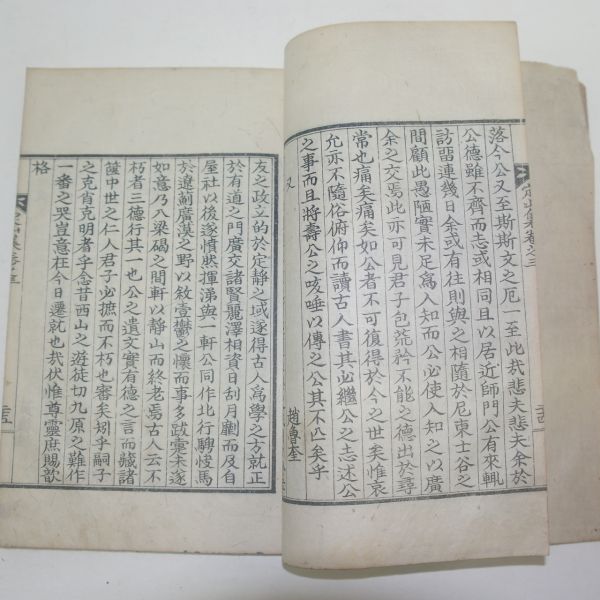 落今公又至斯斯文之厄一至此哉悲夫悲夫余於
公德雖不齊而志或相同且以居近師門公有來輒
訪留連幾日余或有往則與之相隨於尼東士谷之
間顧此愚陋實未足爲人知而公必使人知之以廣
余之交焉此亦可見君子包荒矜不能之德出於尋
常也痛矣痛矣如公者不可復得於今之世矣惟哀
允亦不隨俗俯仰而讀古人書其必繼公之志述公
之事而且將壽公之咳唾以傳之公其不亡矣乎
又 趙魯奎
友之政立的於定靜之域遂得古人爲學之方就正
於有道之門廣交諸賢麗澤相資日刮月劘而及自
屋社以後遂憤然揮涕與一軒公同作北行騁怪馬
於遼薊廣漠之野以敘壹鬱之懷而事多跋疐未遂
如意乃八梁碣之間軒以靜山而終老焉古人云不
朽者三德行其一也公之遺文實有德之言而藏諸
篋中世之仁人君子必摭而不朽也審矣矧乎嗣子
之克肯克明者乎念昔西山之遊徒切九原之難作
一番之哭豈意在今日遷就也哉伏惟尊靈庶賜歆
格
集卷之三